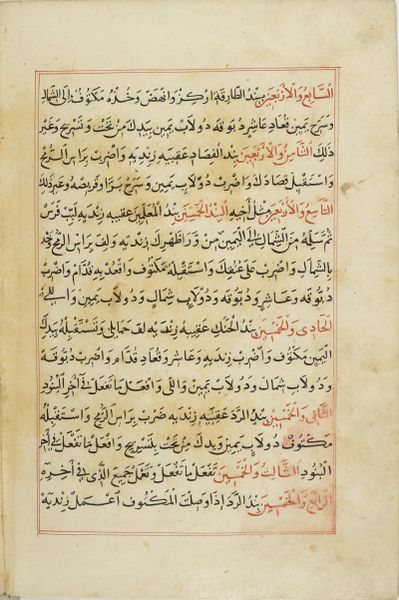 السابع والأربعين بند الطارقة اركز وانهض وخذه مكتوف إلى الشمال
وسرح يمين تعاد عاشر دبوقه دولاب يمين بيدك من تحت وتسريح وغير
ذلك الثامن والأربعين بند الفصام عقبيه زنديه واضرب براس الرمح
واستقبل فصادك واضرب دولاب يمين وسرح برا وقريصه وغير ذلك
التاسع والأربعين مثل أخيه البند الخمسين بند المعلمين عقبيه زنديه لبب فرس
ثم سله من الشمال إلى اليمين من ورا ظهرك زنديه ولف براس الرمح
بالشمال واضرب على عنقك واستقبله مكتوف واقعد به قدام واضرب
دبوقه وعاشر ودبوقه ودولاب شمال ودولاب يمين واللي
الحادي والخمسين بند الحنك عقبيه زنديه لف حمايلي وتستقبله بيدك
اليمين مكتوف واضرب زنديه وعاشر وتعاد قدام واضرب دبوقه
ودولاب شمال ودولاب يمين واللي وافعل ما تفعل في آخر البنود
الثاني والخمسين بند الرد عقبيه زنديه ضرب براس الرمح واستقبله
مكتوف دولاب يمين ويدك من تحت بتسريح وافعل ما تفعل في آخر
البنود الثالث والخمسين تفعل ما تفعل وتعمل جميع الذي في آخره
الرابع والخمسين بند الرد إذا وصلت المكتوف اعمل زنديه